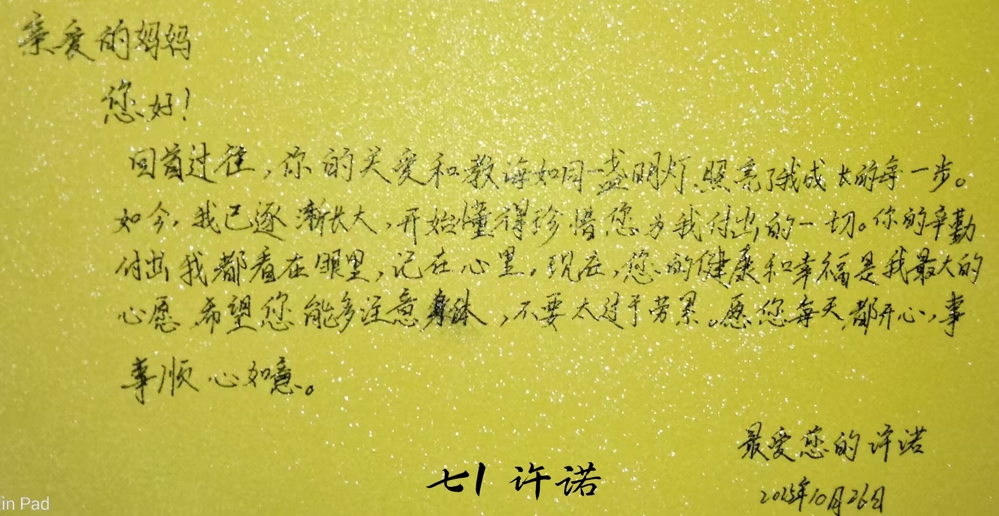 亲爱的妈妈
您好!
回首过往,你的关爱和教诲如同一盏明灯,照亮了我成长的每一步。
如今,我已逐渐长大,开始懂得珍惜您为我付出的一切。你的辛勤
付出我都看在眼里,记在心里,现在,您的健康和幸福是我最大的
心愿,希望您能多注意身体,不要太过于劳累。愿您每天都开心,事
事顺心如意。
最爱您的许诺
2025年10月26日
七1 许诺
in Pad